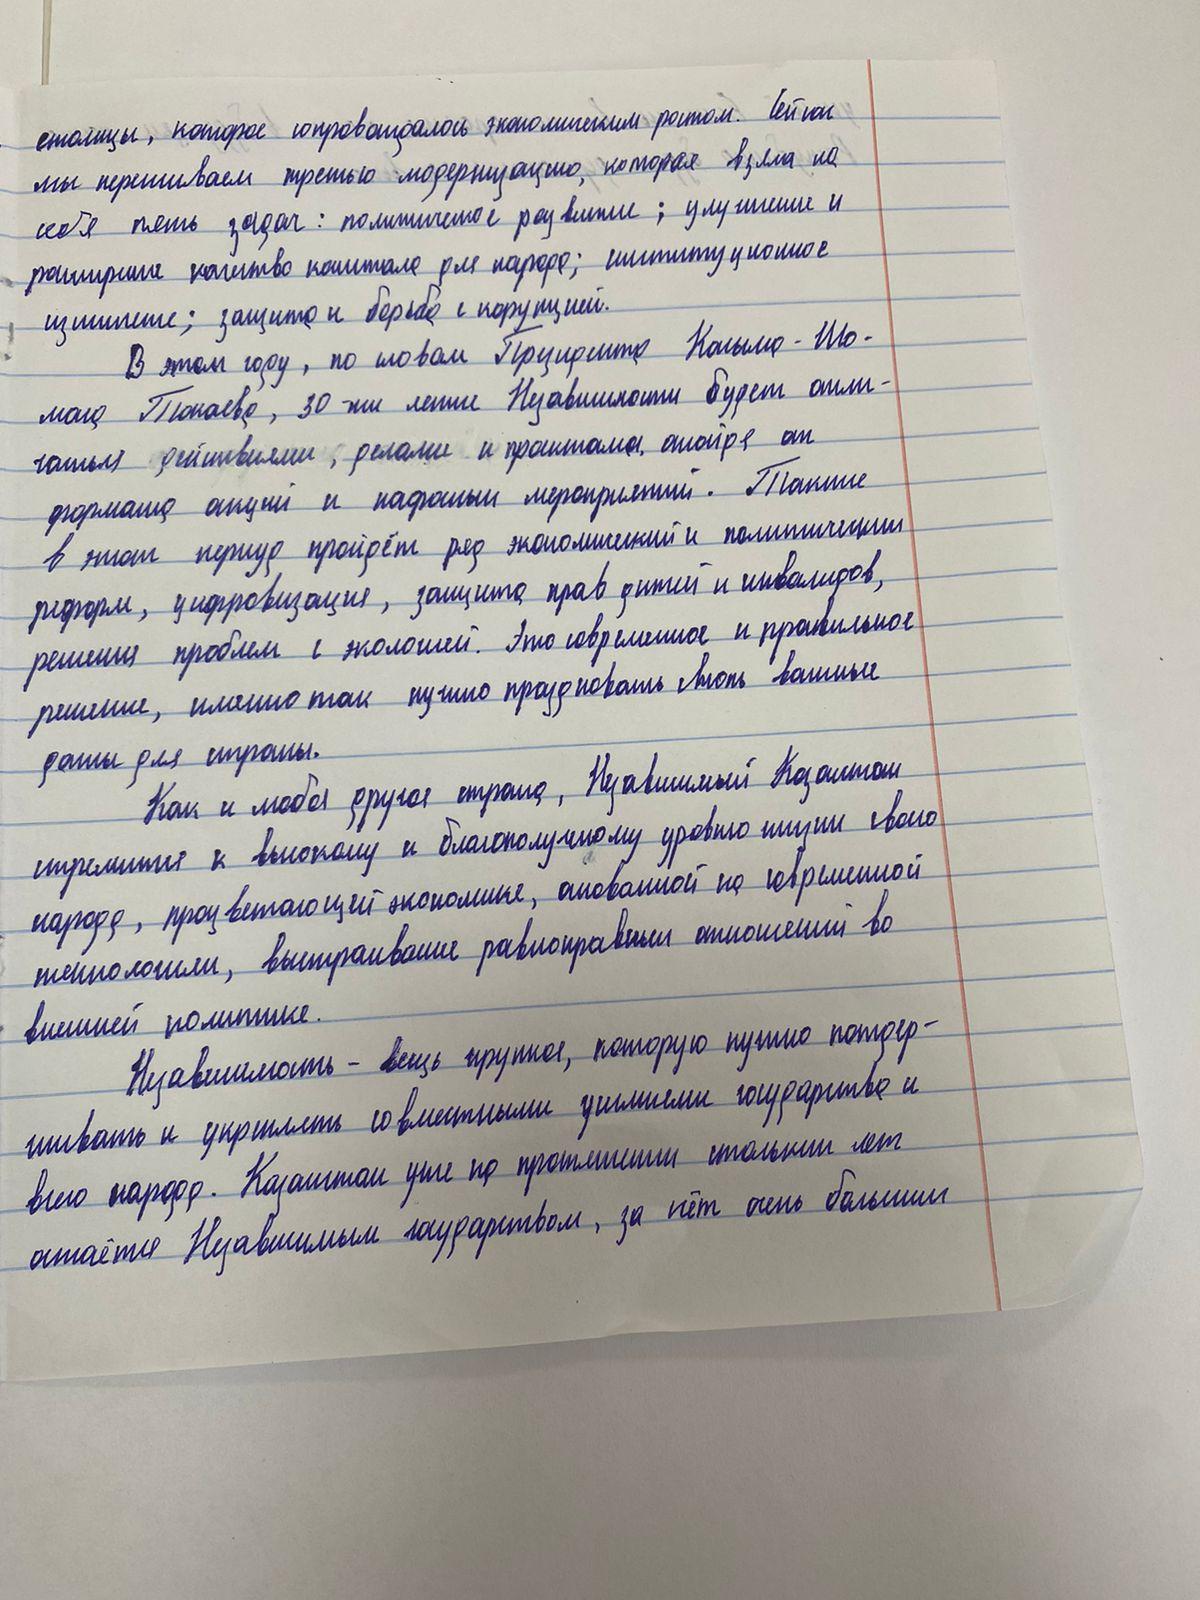 столицы, которое сопровождалось экономическим ростом. Сейчас
мы переживаем третью модернизацию, которая взяла на
себя пять задач: политическое развитие; улучшение и
расширение качество капитала для народа; институционное
изменение; защита и борьба с корупцией.
В этом году, по словам Президента Касыма-Жо-
мата Токаева, 30-ти летие Независимости будет отли-
чаться действиями, делами и проектами, отойдя от
формата акций и пафосных мероприятий. Также
в этот период пройдёт ряд экономический и политических
реформ, цифровизация, защита прав детей и инвалидов,
решения проблем с экологией. Это современное и правильное
решение, именно так нужно праздновать столь важные
даты для страны.
Как и любая другая страна, Независимый Казахстан
стремится к высокому и благополучному уровню жизни своего
народа, процветающей экономике, основанной на современной
технологии, выстраивание равноправных отношений во
внешней политике.
Независимость - вещь хрупкая, которую нужно поддер-
живать и укреплять совместными усилиями государства и
всего народа. Казахстан уже на протяжении стольких лет
остаётся Независимым государством, за счёт очень больших